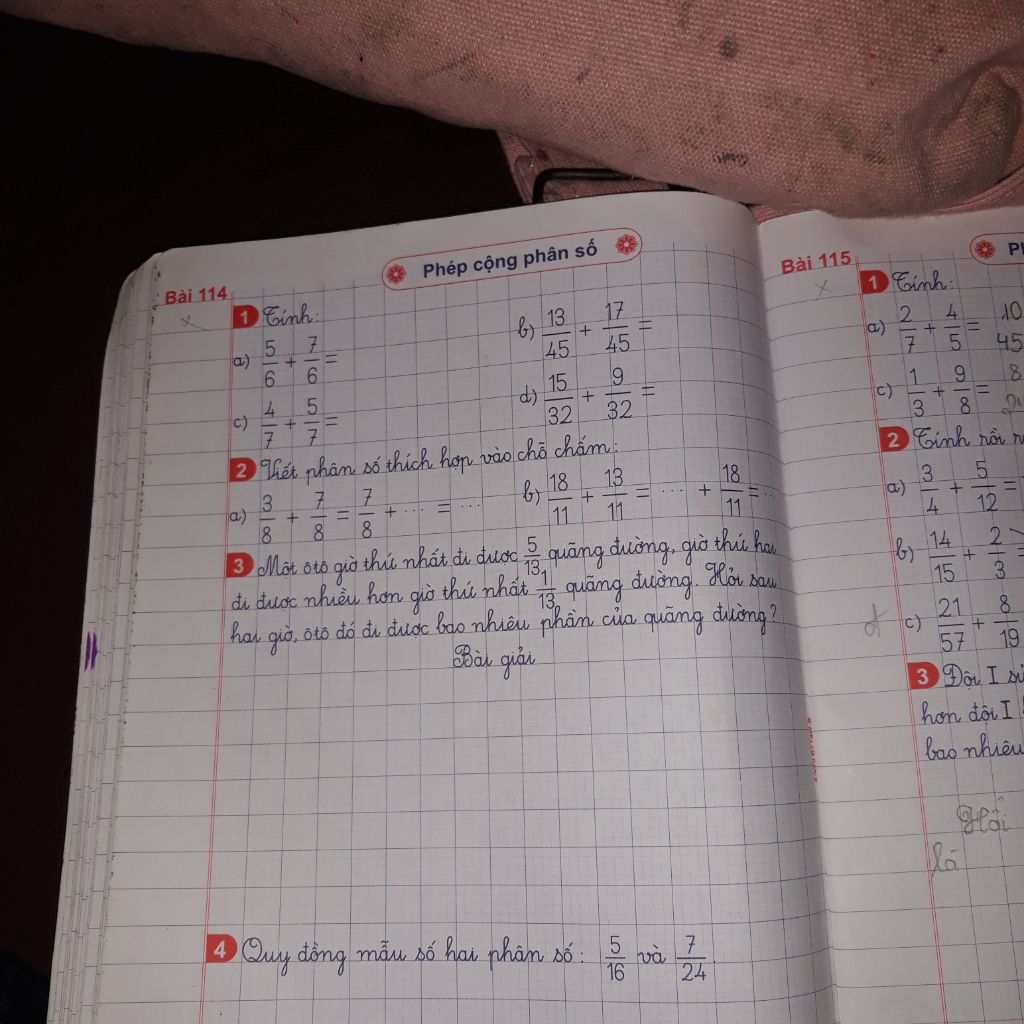 Phép cộng phân số
Bài 114
1 Tính:
a) 5/6 + 7/6 =
b) 13/45 + 17/45 =
c) 4/7 + 5/7 =
d) 15/32 + 9/32 =
2 Viết phân số thích hợp vào chỗ chấm:
a) 3/8 + 7/8 = 7/8 + ... = ...
b) 18/11 + 13/11 = ... + 18/11 = ...
3 Một ôtô giờ thứ nhất đi được 5/13 quãng đường, giờ thứ hai
đi được nhiều hơn giờ thứ nhất 1/13 quãng đường. Hỏi sau
hai giờ, ôtô đó đi được bao nhiêu phần của quãng đường?
Bài giải
4 Quy đồng mẫu số hai phân số: 5/16 và 7/24.
Bài 115
1 Tính:
a) 2/7 + 4/5 =
c) 1/3 + 9/8 =
2 Tính rồi
a) 3/4 + 5/12 =
b) 14/15 + 2/3 =
c) 21/57 + 8/19
3 Đội I
hơn đội I
bao nhiêu
Hỏi